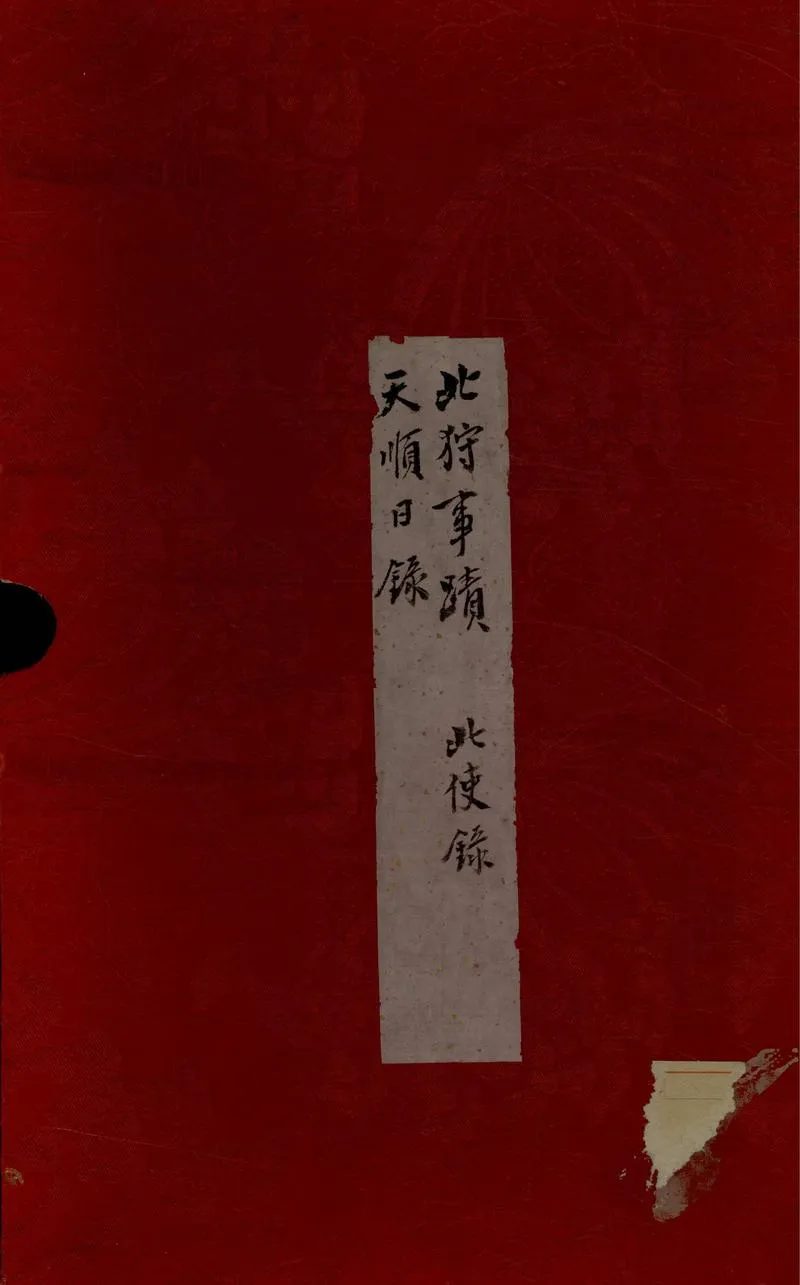 北狩事蹟　北使錄
天順日錄